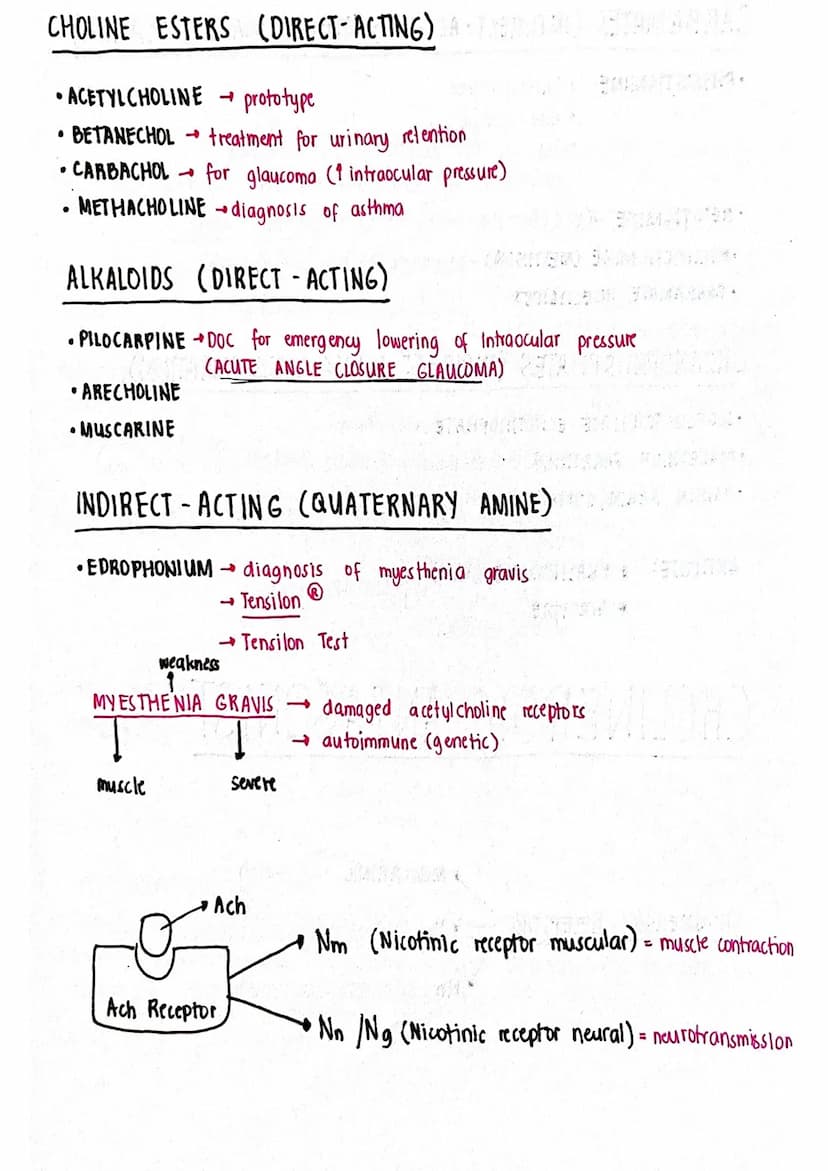 CHOLINE ESTERS (DIRECT-ACTING)
• ACETYLCHOLINE → prototype
• BETANECHOL → treatment for urinary retention
• CARBACHOL → for glaucoma (↑ intraocular pressure)
• METHACHOLINE → diagnosis of asthma
ALKALOIDS (DIRECT-ACTING)
• PILOCARPINE → DOC for emergency lowering of Intraocular pressure
(ACUTE ANGLE CLOSURE GLAUCOMA)
• ARECHOLINE
• MUSCARINE
INDIRECT-ACTING (QUATERNARY AMINE)
• EDROPHONIUM → diagnosis of myesthenia gravis
→ Tensilon ®
→ Tensilon Test
weakness
MYESTHENIA GRAVIS → damaged acetylcholine receptors
→ autoimmune (genetic)
muscle severe
Ach
Nm (Nicotinic receptor muscular) = muscle contraction
Ach Receptor
Nn /Ng (Nicotinic receptor neural) = neurotransmission